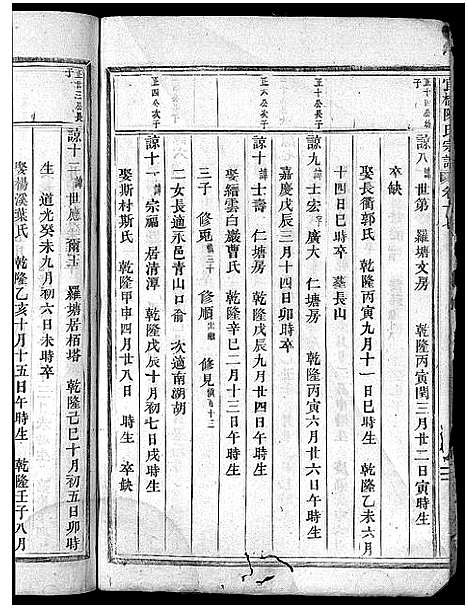 宜橋陳氏宗譜
諒八 世第 羅塘文房 乾隆丙寅閏三月廿二日寅時生
卒缺
娶長衢郭氏 乾隆丙寅九月十一日巳時生 乾隆乙未六月
十四日巳時卒 墓長山
正十公長子
諒九 諱 士宏 字 廣大 仁塘房 乾隆丙寅六月廿六日午時生
嘉慶戊辰三月十四日卯時卒
正六公次子
諒十 諱 士壽 仁塘房 乾隆戊辰九月廿四日午時生
娶縉雲白巖曹氏 乾隆辛巳二月十三日午時生
三子 修兎 修順 修見
二女長適永邑青山口俞 次適南湖胡
正四公次子
諒十一 諱 宗福 居清潭 乾隆戊辰十月初七日戌時生
娶斯村斯氏 乾隆甲申四月廿八日 時生 卒缺
諒十三 諱 世應 羅塘居栢塔 乾隆己巳十月初五日卯時
生 道光癸未九月初六日未時卒
娶楊溪葉氏 乾隆乙亥十月十五日午時生 乾隆壬子八月